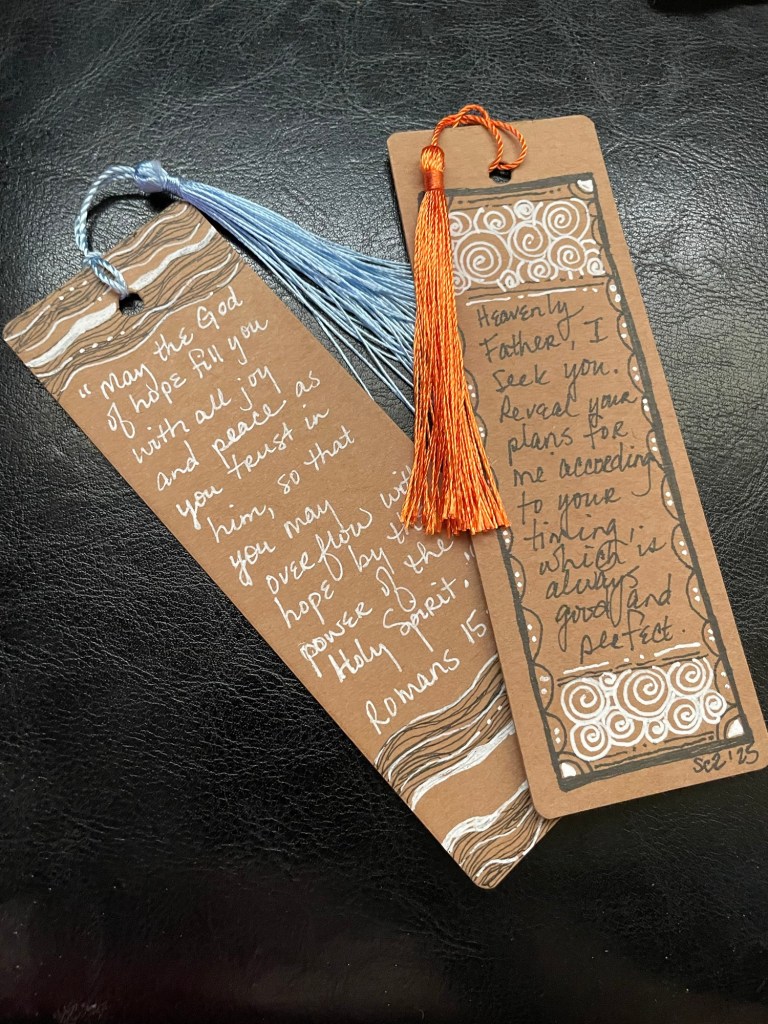 "May the God
of hope fill you
with all joy
and peace as
you trust in
him, so that
you may
overflow with
hope by the
power of the
Holy Spirit."
Romans 15
Heavenly
Father, I
seek you.
Reveal your
plans for
me according
to your
timing,
which is
always
good and
perfect.